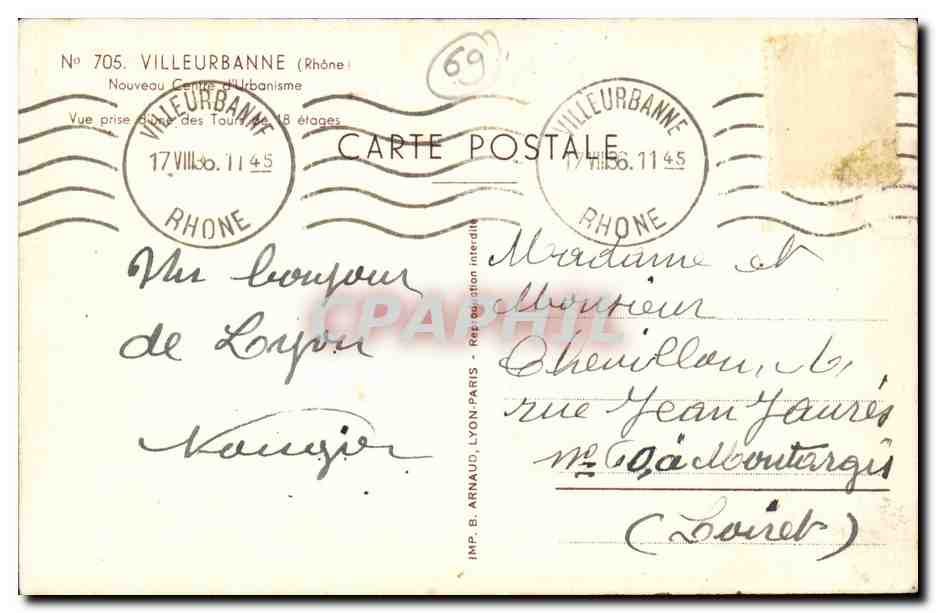 No 705. VILLEURBANNE (Rhône)
Nouveau Centre d'Urbanisme
Vue prise d'une des Tours de 18 étages
69
VILLEURBANNE
17 VIII36. 11 45
RHONE
CARTE POSTALE
VILLEURBANNE
17 VIII36. 11 45
RHONE
Un bonjour
de Lyon
Nougier
IMP. B. ARNAUD, LYON-PARIS - Reproduction interdite
CPAPHIL
Madame et
Monsieur
Chevillon,
rue Jean Jaurès
No 60, à Montargis
(Loiret)